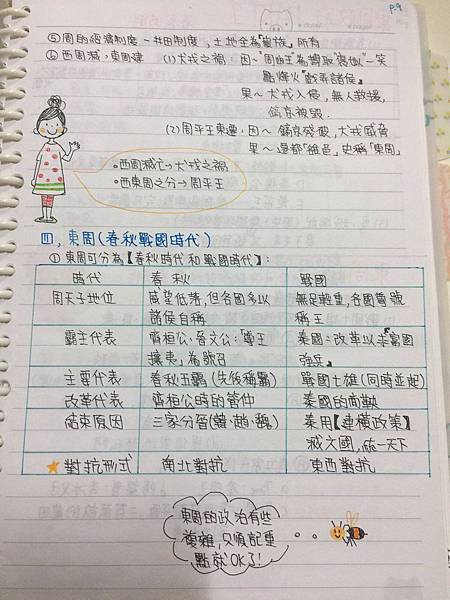 P.9
⑤周的經濟制度－井田制度，土地全為「貴族」所有
⑥西周滅，東周建 (1)犬戎之禍：因～"周幽王"為博取"褒姒"一笑
點烽火"戲弄諸侯。
果～犬戎入侵，無人救援，
鎬京被毀.
(2)周平王東遷：因～鎬京殘破，犬戎威脅
果～遷都「雒邑」，史稱「東周」
•西周滅亡→犬戎之禍
•西東周之分→周平王
四，東周(春秋戰國時代)
①東周可分為【春秋時代和戰國時代】：
時代 春秋 戰國
周天子地位 威望低落，但各國多以諸侯自稱 無足輕重，各國實號稱王
霸主代表 齊桓公、晉文公：「尊王攘夷」為號召 秦國：改革以求"富國強兵」
主要代表 春秋五霸(先後稱霸) 戰國七雄(同時並起)
改革代表 齊桓公時的管仲 秦國的商鞅
結束原因 三家分晉(韓、趙、魏) 秦用【連橫政策】滅六國，統一天下
★對抗形式 南北對抗 東西對抗
東周的政治有些
複雜，只須記重
點就OK了!